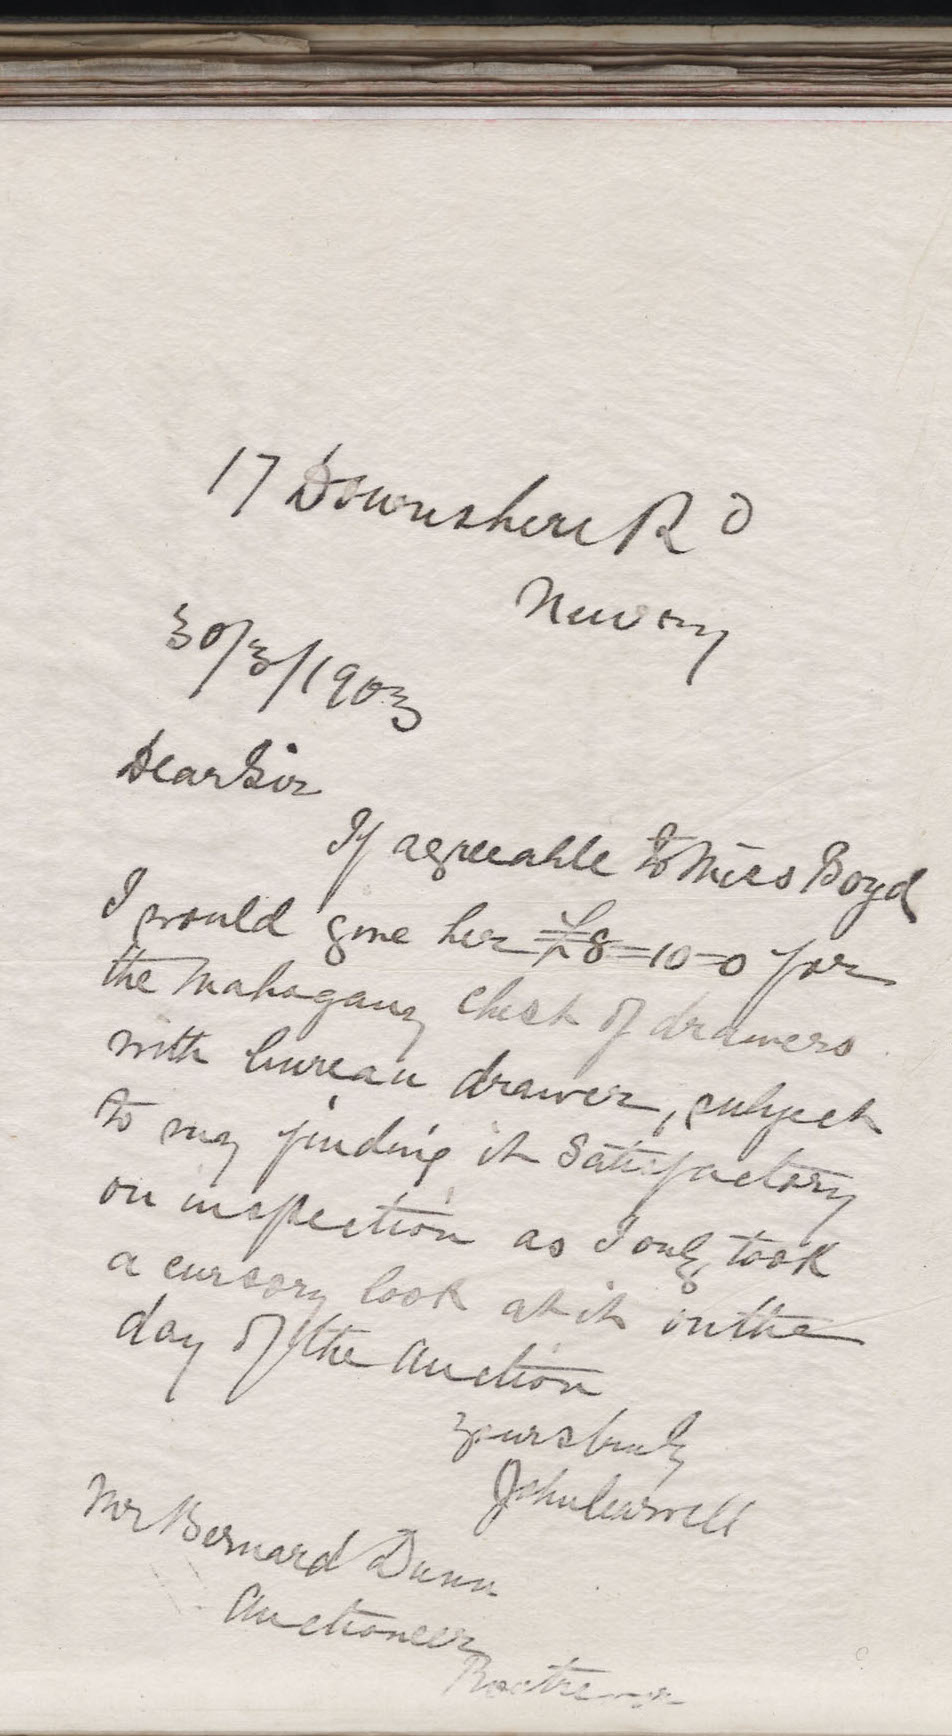 17 Downshire Rd
Newry
30/3/1903
Dear Sir
If agreeable to Miss Boyd
I would give her £8=10=0 for
the Mahogany Chest of drawers
with bureau drawer, subject
to my finding it Satisfactory
on inspection as I only took
a cursory look at it on the
day of the Auction
yours truly
John
Mr Bernard Dunn
Auctioneer